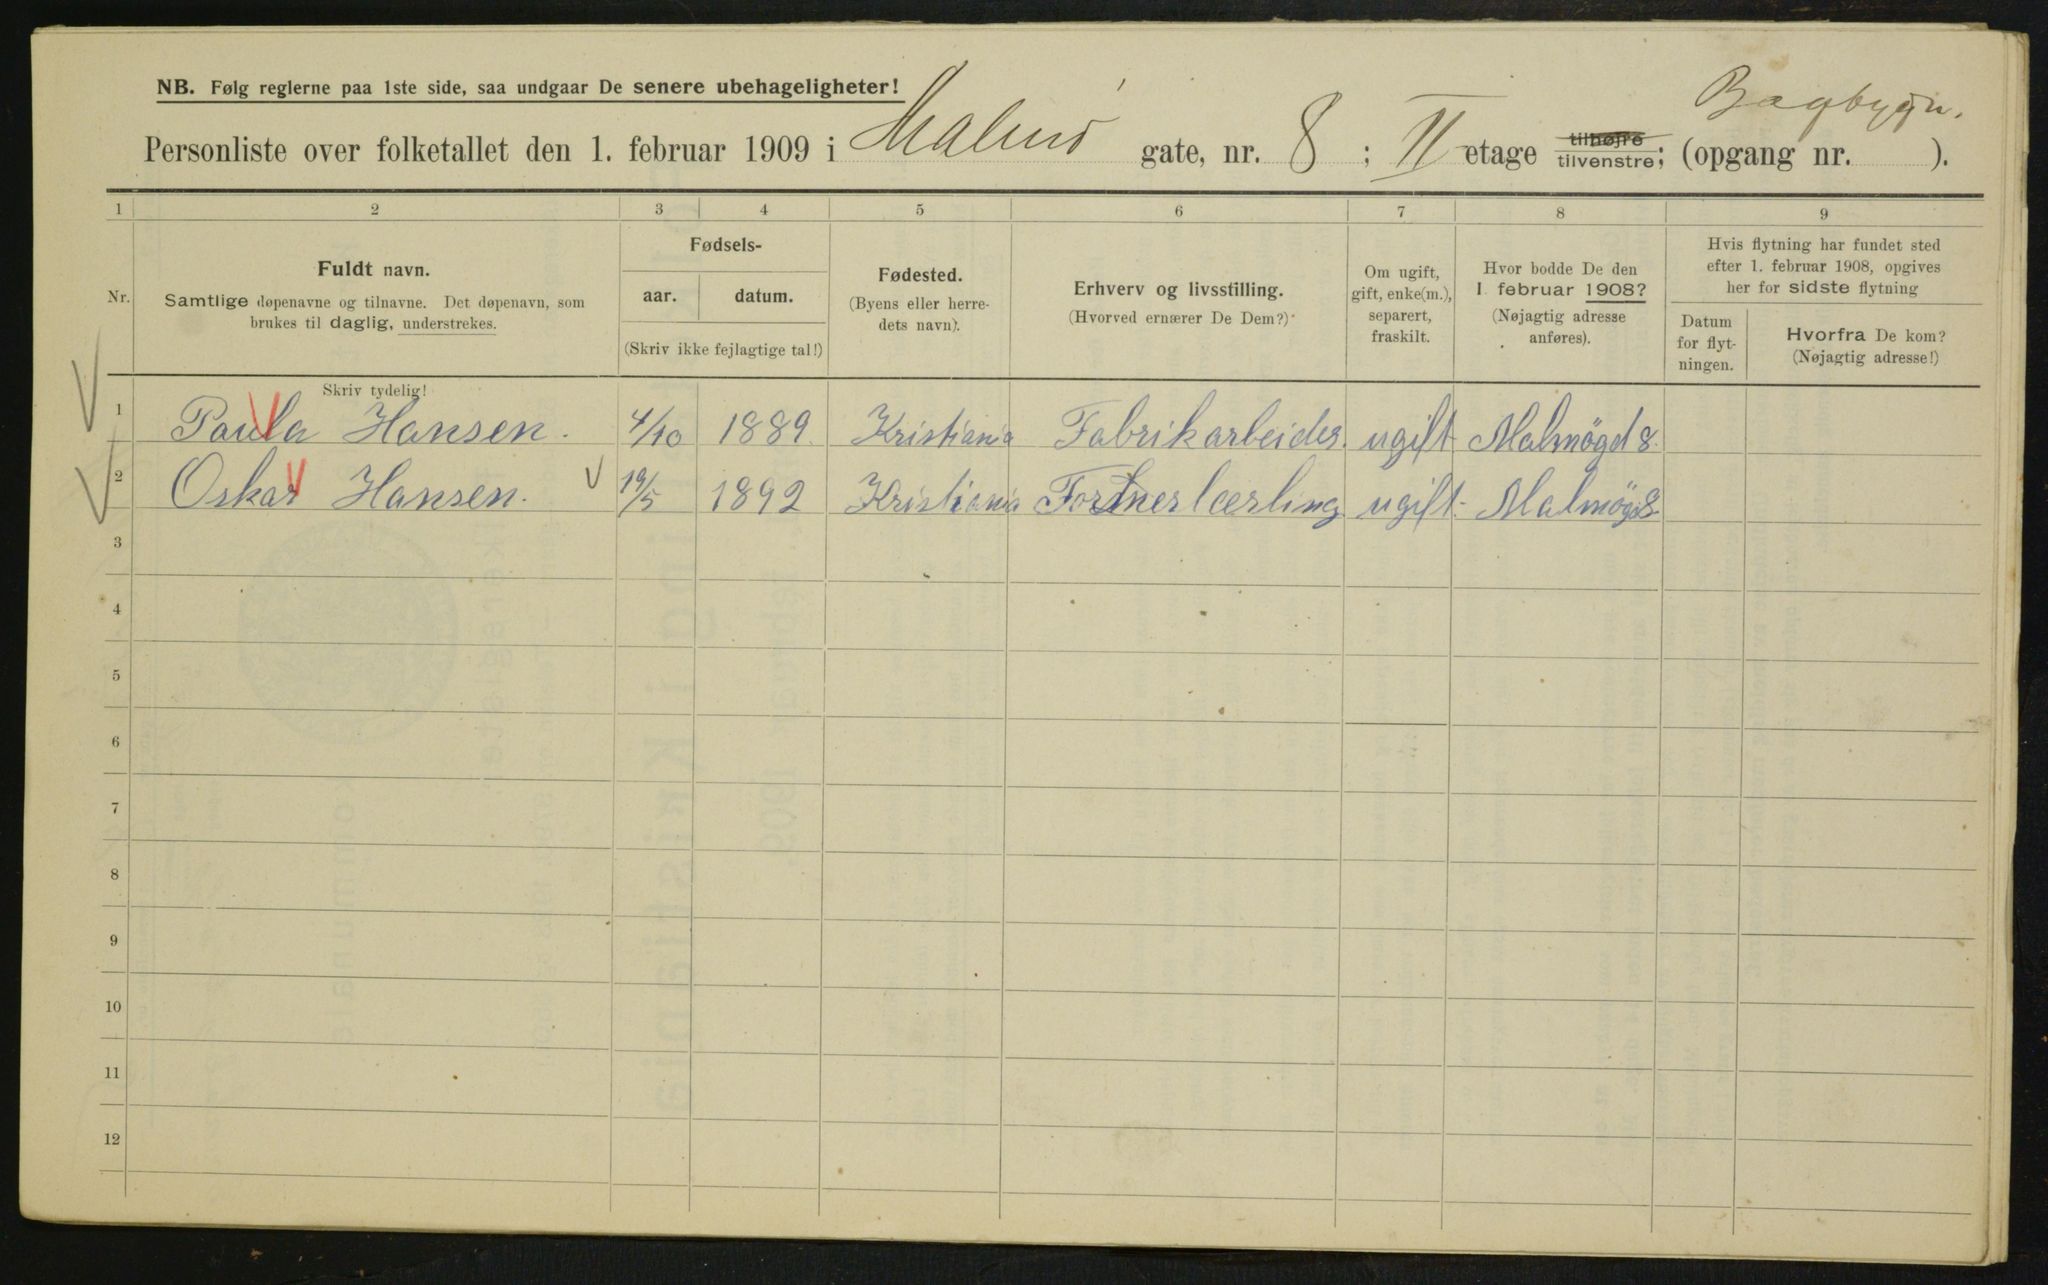 NB. Følg reglerne paa 1ste side, saa undgaar De senere ubehageligheter!
Bagbygn.
Personliste over folketallet den 1. februar 1909 i Malmö gate, nr. 8; II etage tilhøjre tilvenstre; (opgang nr. ).
1 2 3 4 5 6 7 8 9
Nr.
Fuldt navn.
Samtlige døpenavne og tilnavne. Det døpenavn, som
brukes til daglig, understrekes.
Skriv tydelig!
Fødsels-
aar. datum.
(Skriv ikke fejlagtige tal!)
Fødested.
(Byens eller herre-
dets navn).
Erhverv og livsstilling.
(Hvorved ernærer De Dem?)
Om ugift,
gift, enke(m.),
separert,
fraskilt.
Hvor bodde De den
1. februar 1908?
(Nøjagtig adresse
anføres).
Hvis flytning har fundet sted
efter 1. februar 1908, opgives
her for sidste flytning
Datum
for flyt-
ningen.
Hvorfra De kom?
(Nøjagtig adresse!)
1 Paula Hansen. 4/10 1889. Kristiania Fabrikarbeider. ugift Malmögd 8.
2 Oskar Hansen. 19/5 1892 Kristiania ugift. Malmögd 8
3
4
5
6
7
8
9
10
11
12